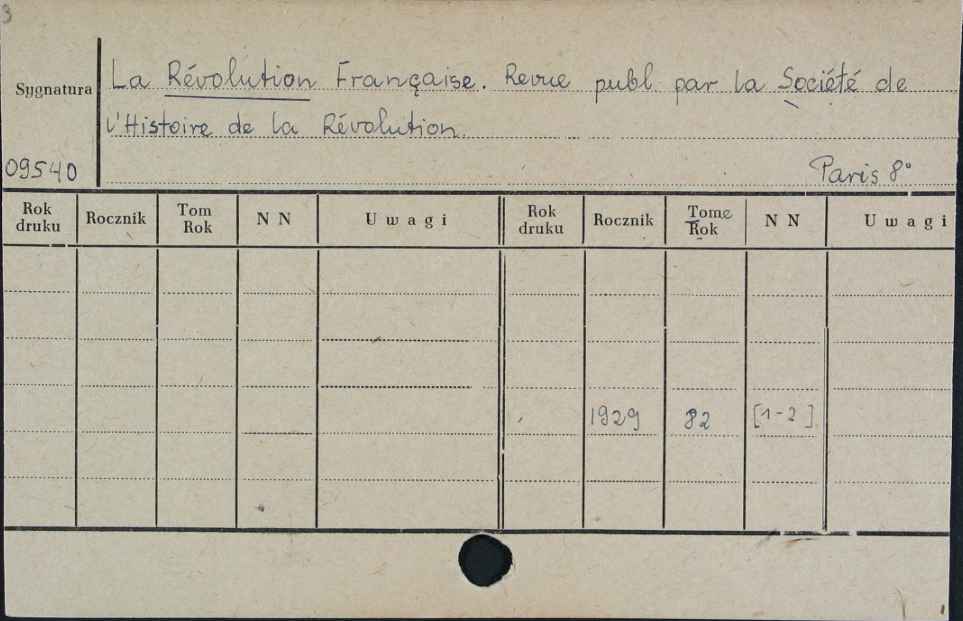 3
La Révolution Française. Revue publ. par la Société de
Sygnatura
l'Histoire de la Révolution.
09540 Paris 8°
Rok druku Rocznik Tom Rok N N Uwagi Rok druku Rocznik Tome Rok N N Uwagi
1929 82 [1-2]